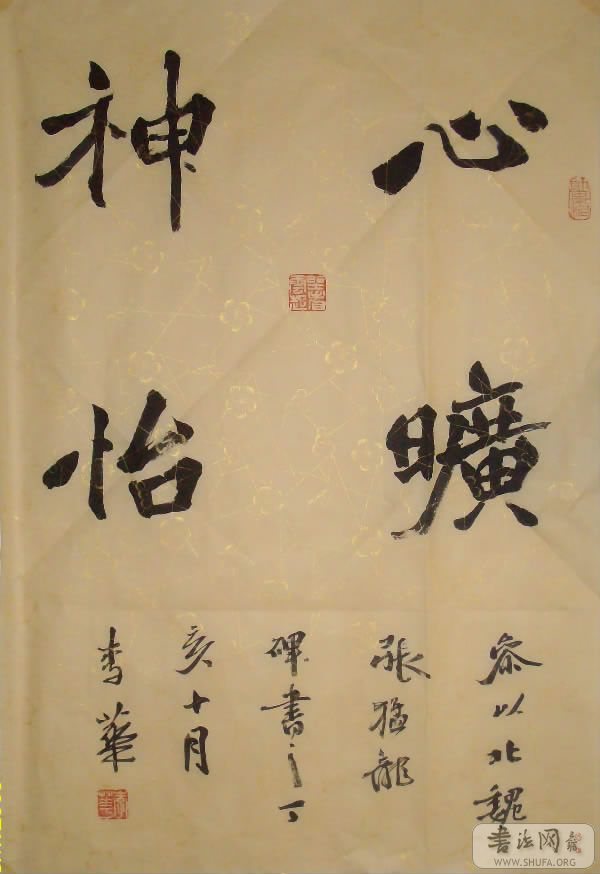 心曠
神怡
參以北魏
張猛龍
碑書之丁
亥十月
李華
書法网
WWW.SHUFA.ORG